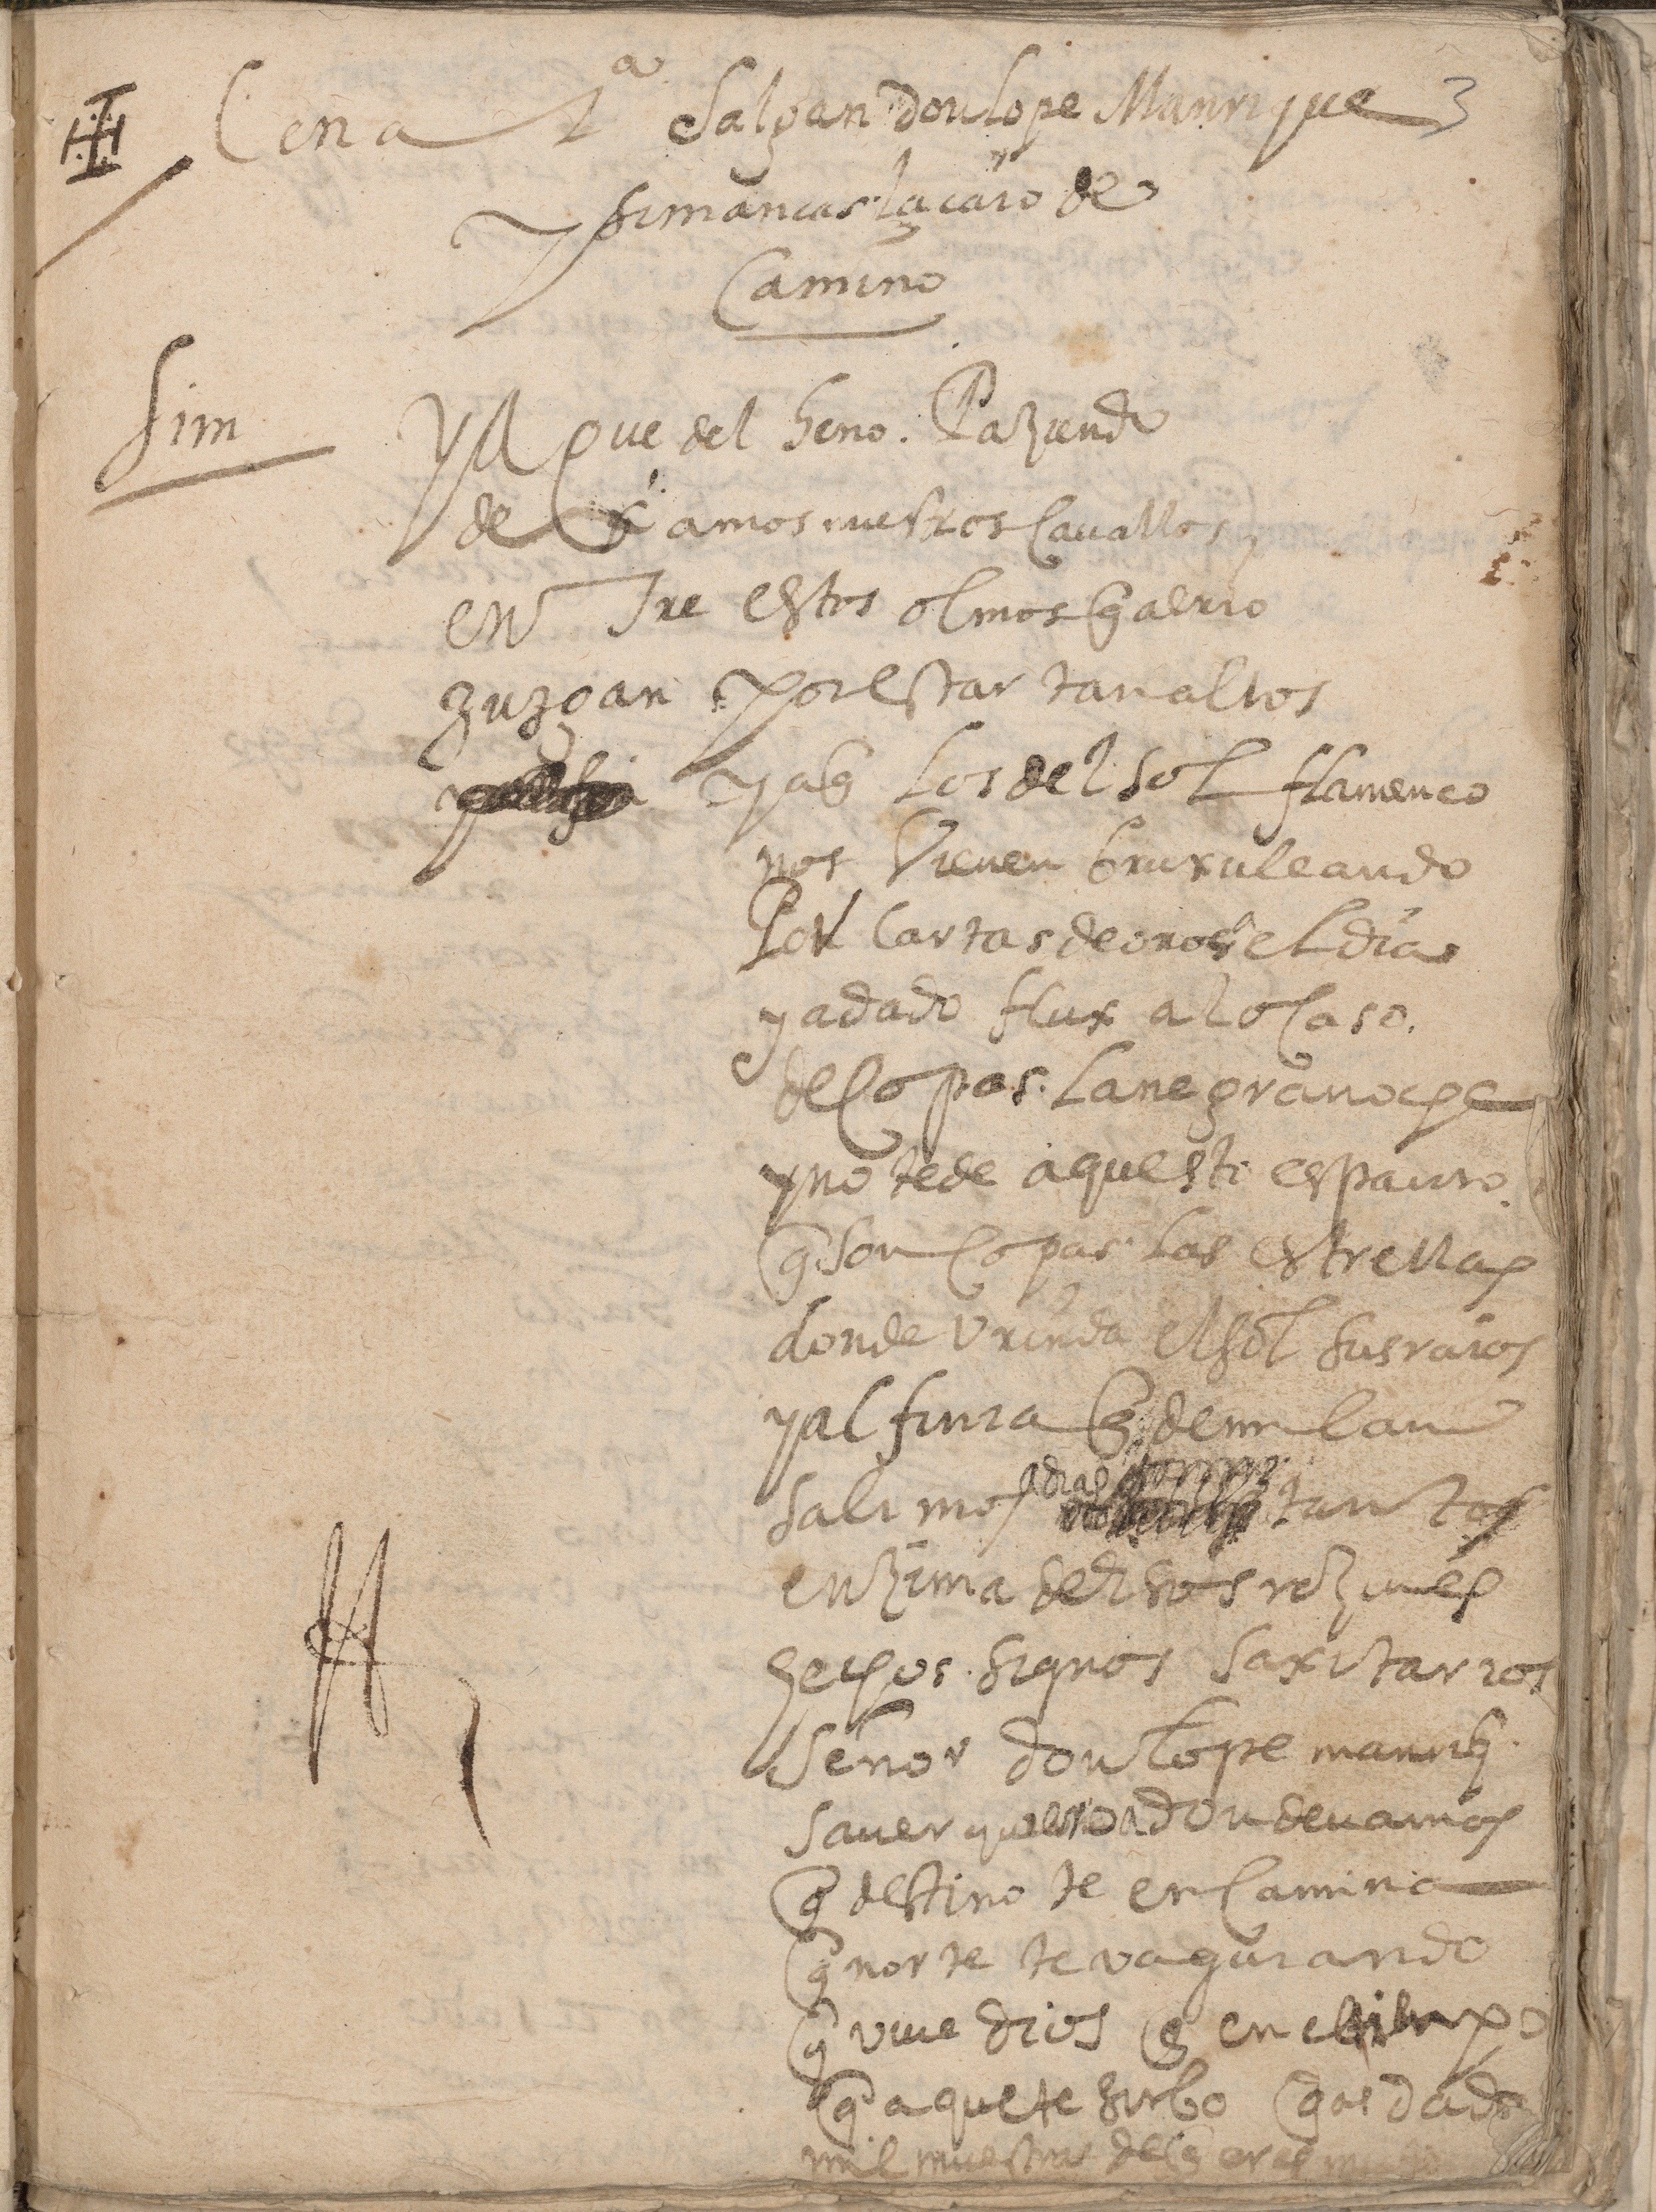 Cena 1ª Salgan don Lope Manrique 3
y simancas lacaio de
Camino
Sim
Ya que del heno. Paziendo
dexamos nuestros Cauallos
entre estos olmos q̃ al rio
zuzgan por estar tan altos
ya q̃ los del sol flamenco
nos Vienen bruxuleando
Por Cartas de oros el dia
y a dado flux al ocaso.
de Copas. la negra noche
y no te de aquesto espanto.
q̃ son Copas las estrellas
donde brinda el sol sus raios
y al fin ia q̃ de milan
salimos a dias tantos
en zima de dos rozines
hechos signos saxitarios
señor don Lope manriq̃
sauer quiero a donde uamos
q̃ destino te encamina
q̃ norte te va guiando
q̃ viue dios q̃ en el tiempo
q̃ a que te sirbo q̃ as dado
mil muestras de q̃ eres